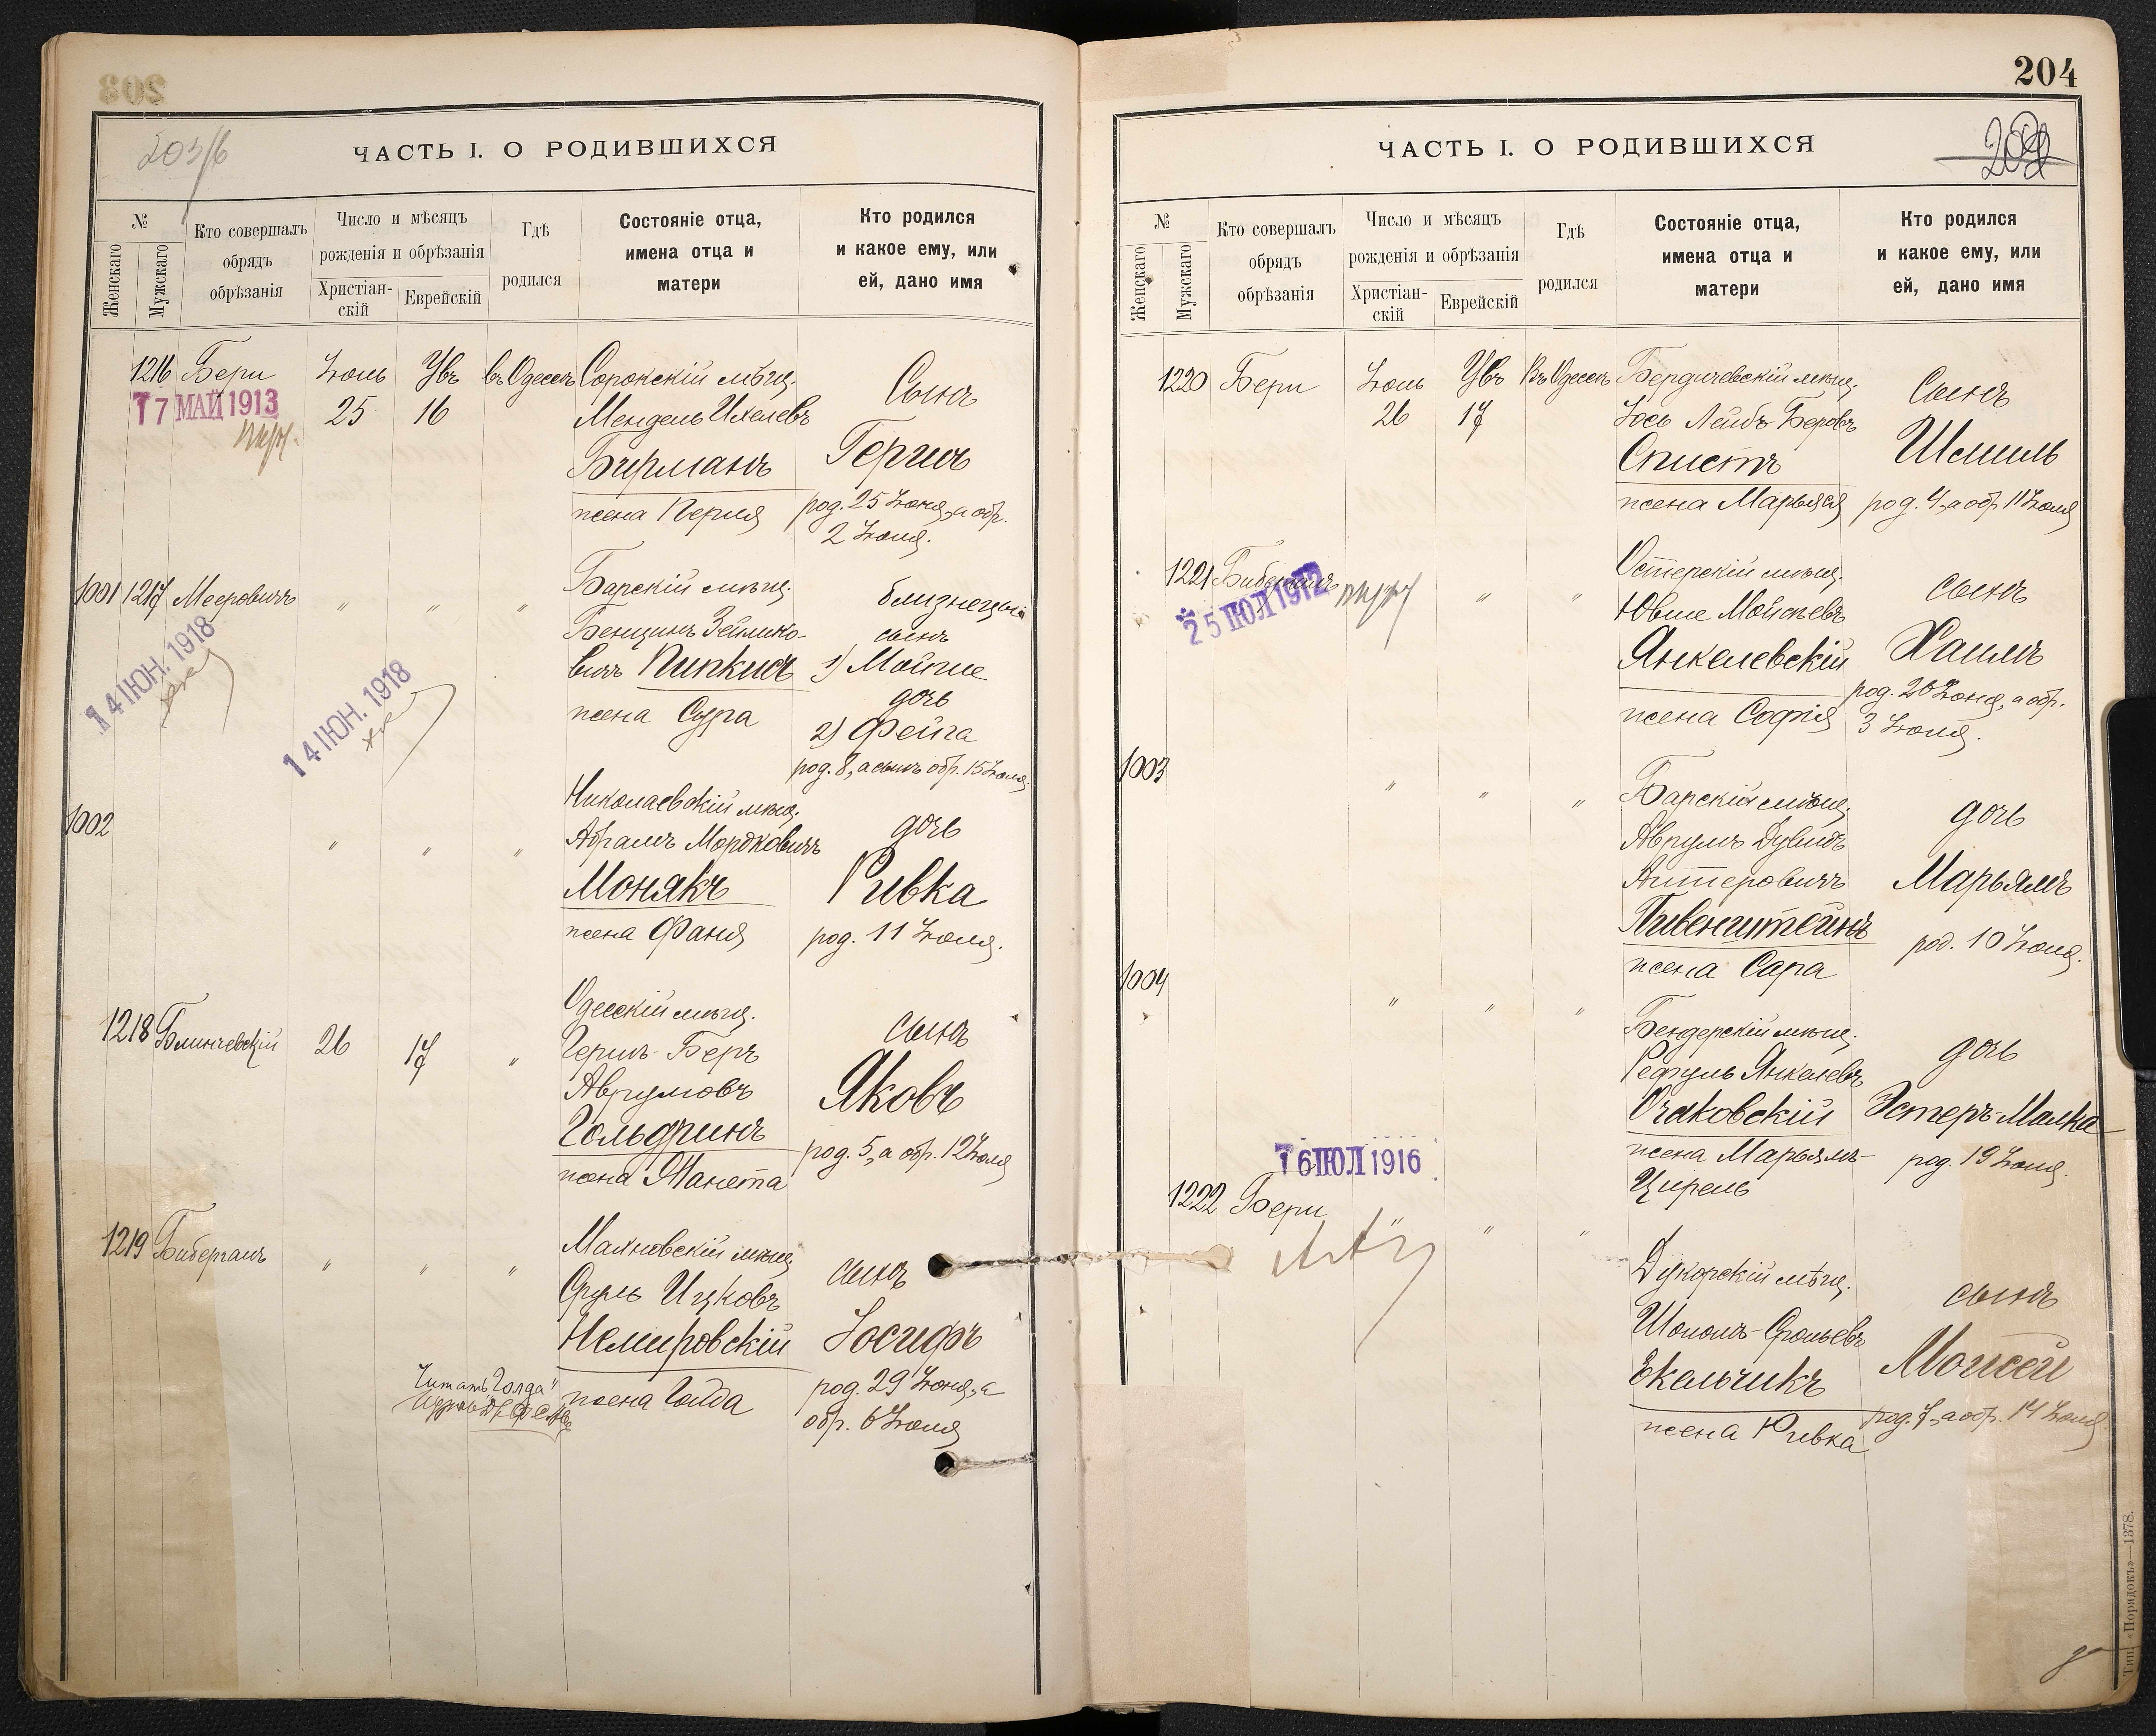 203/б
ЧАСТЬ I. О РОДИВШИХСЯ
№
Женскаго
Мужскаго
Кто совершалъ
обрядъ
обрѣзанія
Число и мѣсяцъ
рожденія и обрѣзанія
Христіан-
скій
Еврейскій
Гдѣ
родился
Состояніе отца,
имена отца и
матери
Кто родился
и какое ему, или
ей, дано имя
1216 Бери Іюль Увъ въ Одессѣ Сорокскій мѣщ. Сынъ
17 МАЙ 1913
25 16 Мендель Ихелевъ
Бирманъ Гершъ
жена Перля род. 25 Іюня, а обр.
2 Іюля.
1001 1217 Мееровичъ " " " Барскій мѣщ. близнецы
Бенционъ Зейлико- сынъ
вичъ Пипкисъ 1) Мойше
жена Сура дочь
2) Фейга
род. 8, а сынъ обр. 15 Іюля.
14 ІЮН. 1918
14 ІЮН. 1918
1002 " " " Николаевскій мѣщ. дочь
Абрамъ Мордковичъ
Монякъ Ривка
жена Фаня род. 11 Іюля.
1218 Блинчевскій 26 17 " Одесскій мѣщ. сынъ
Гершъ-Беръ
Аврумовъ Яковъ
Гольдринъ
жена Манета род. 5, а обр. 12 Іюля
1219 Бибергалъ " " " Маяновскій мѣщ. сынъ
Сруль Ицковъ
Немировскій Іосифъ
жена Голда род. 29 Іюня, а
обр. 6 Іюля
Читать "Голда"
204
ЧАСТЬ I. О РОДИВШИХСЯ
№
Женскаго
Мужскаго
Кто совершалъ
обрядъ
обрѣзанія
Число и мѣсяцъ
рожденія и обрѣзанія
Христіан-
скій
Еврейскій
Гдѣ
родился
Состояніе отца,
имена отца и
матери
Кто родился
и какое ему, или
ей, дано имя
1220 Бери Іюль Увъ Въ Одессѣ Бердичевскій мѣщ. Сынъ
26 17 Іось Лейбъ Беровъ
Спистъ Шмиль
жена Марьяся род. 4, а обр. 11 Іюля
1221 Бибергалъ " " " Остерскій мѣщ. сынъ
25 ІЮЛ 1912
Ювше Мойсѣевъ
Янкелевскій Хаимъ
жена Софія род. 26 Іюня, а обр.
3 Іюля.
1003 " " " Барскій мѣщ. дочь
Аврумъ Дувидъ
Антеровичъ Марьямъ
Пивенштейнъ
жена Сара род. 10 Іюля.
1004 " " " Бендерскій мѣщ. дочь
Рефуль Янкелевъ
Очаковскій Эстеръ-Малка
жена Марьямъ- род. 19 Іюля.
Цирель
16 ІЮЛ 1916
1222 Бери " " " Дукорскій мѣщ. сынъ
Шоломъ-Срольевъ
Екельчикъ Моисей
жена Ривка род. 7, а обр. 14 Іюля
Тип. «Порядокъ»—1378.